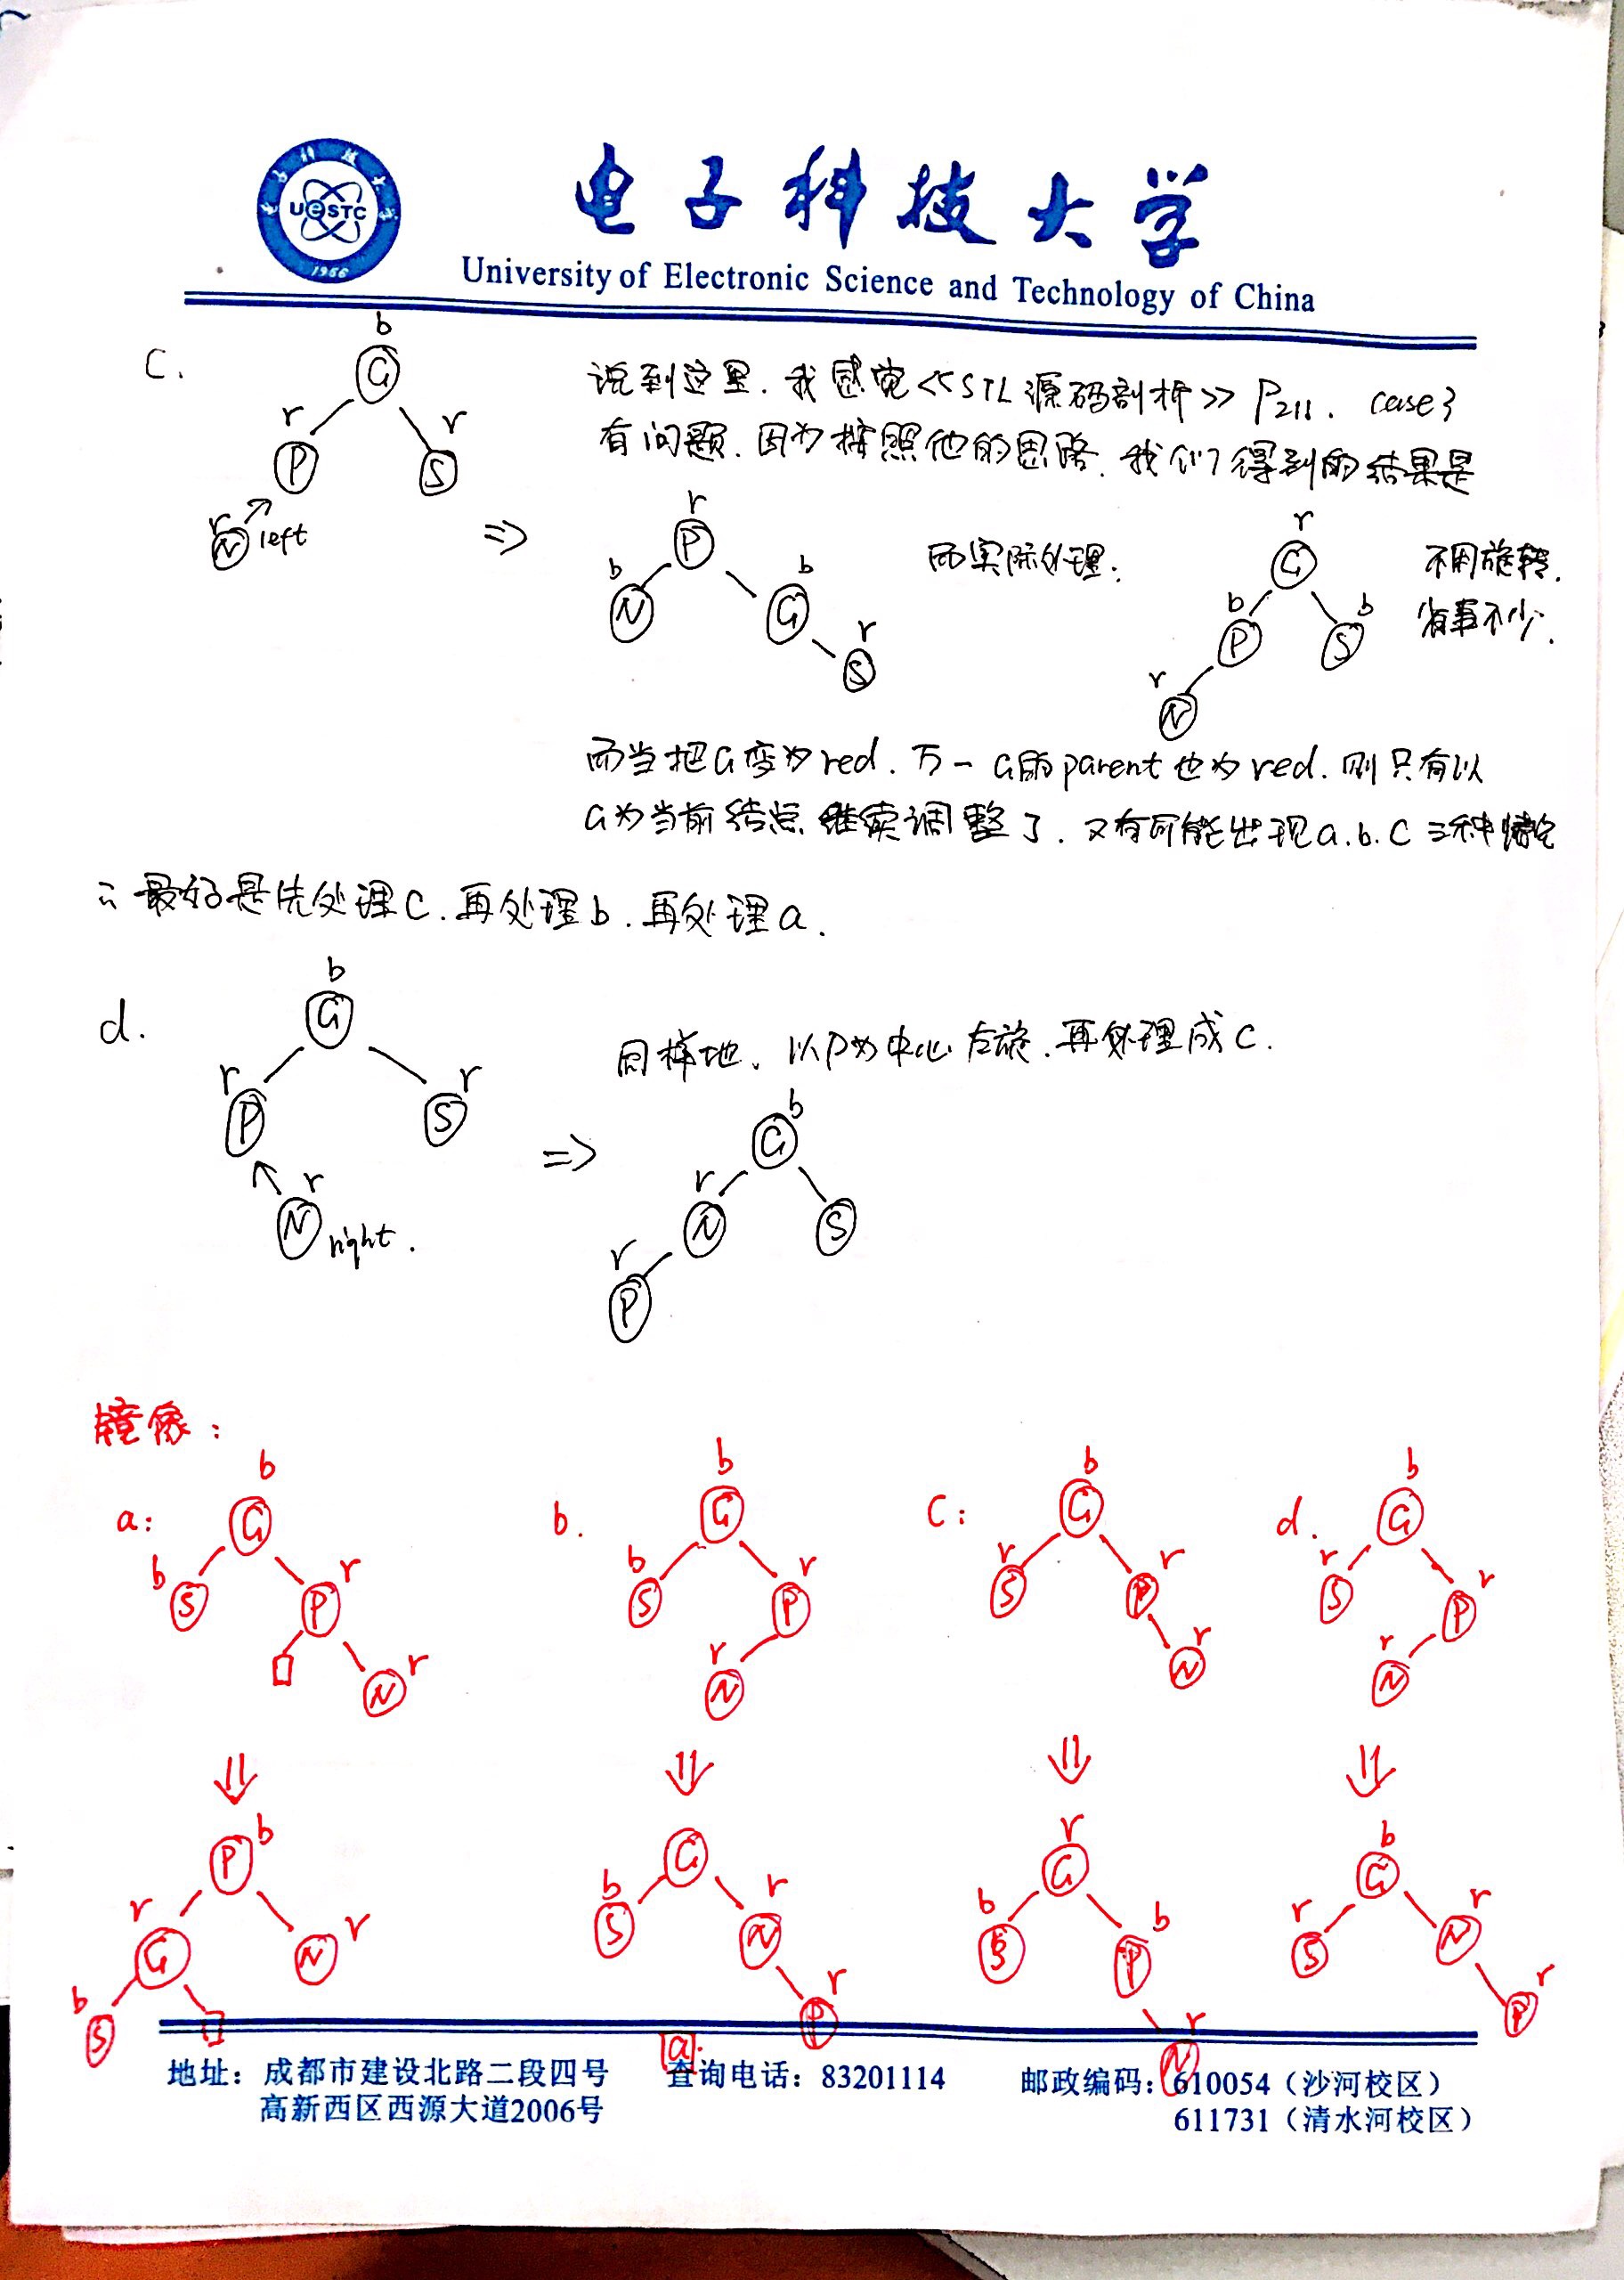 电子科技大学
University of Electronic Science and Technology of China
UESTC
1956
c.
b
G
r
r
P
S
r
N left
=>
说到这里. 我感觉<<STL源码剖析>> P211. case3
有问题. 因为按照他的思路. 我们得到的结果是
r
P
b
b
N
G
r
S
而实际处理:
r
G
b
b
P
S
r
N
不用旋转.
省事不少.
而当把G变为red. 万一G的parent也为red. 则只有以
G为当前结点继续调整了. 又有可能出现a.b.c三种情况
∴最好是先处理c.再处理b.再处理a.
d.
b
G
r
r
P
S
r
N right.
同样地. 以P为中心左旋.再处理成c.
=>
b
G
r
N
S
r
P
镜像:
a:
b
G
b
r
S
P
r
N
b.
b
G
b
r
S
P
r
N
c:
b
G
r
r
S
P
r
N
d.
b
G
r
r
S
P
r
N
P b
r
G
N r
b
S
G
b
r
S
N
r
P
a.
r
G
b
b
S
P
r
N
b
G
r
r
S
N
r
P
地址：成都市建设北路二段四号
高新西区西源大道2006号
查询电话：83201114
邮政编码：610054（沙河校区）
611731（清水河校区）